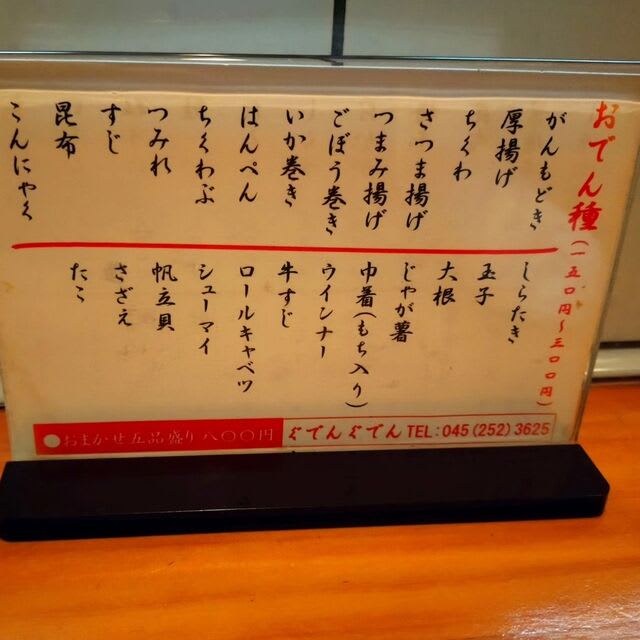 おでん種(一五〇円～三〇〇円)
がんもどき
厚揚げ
ちくわ
さつま揚げ
つまみ揚げ
ごぼう巻き
いか巻き
はんぺん
ちくわぶ
つみれ
すじ
昆布
こんにゃく
しらたき
玉子
大根
じゃが薯
巾着(もち入り)
ウインナー
牛すじ
ロールキャベツ
シューマイ
帆立貝
さざえ
たこ
●おまかせ五品盛り八〇〇円
ぐでんぐでん TEL:045(252)3625